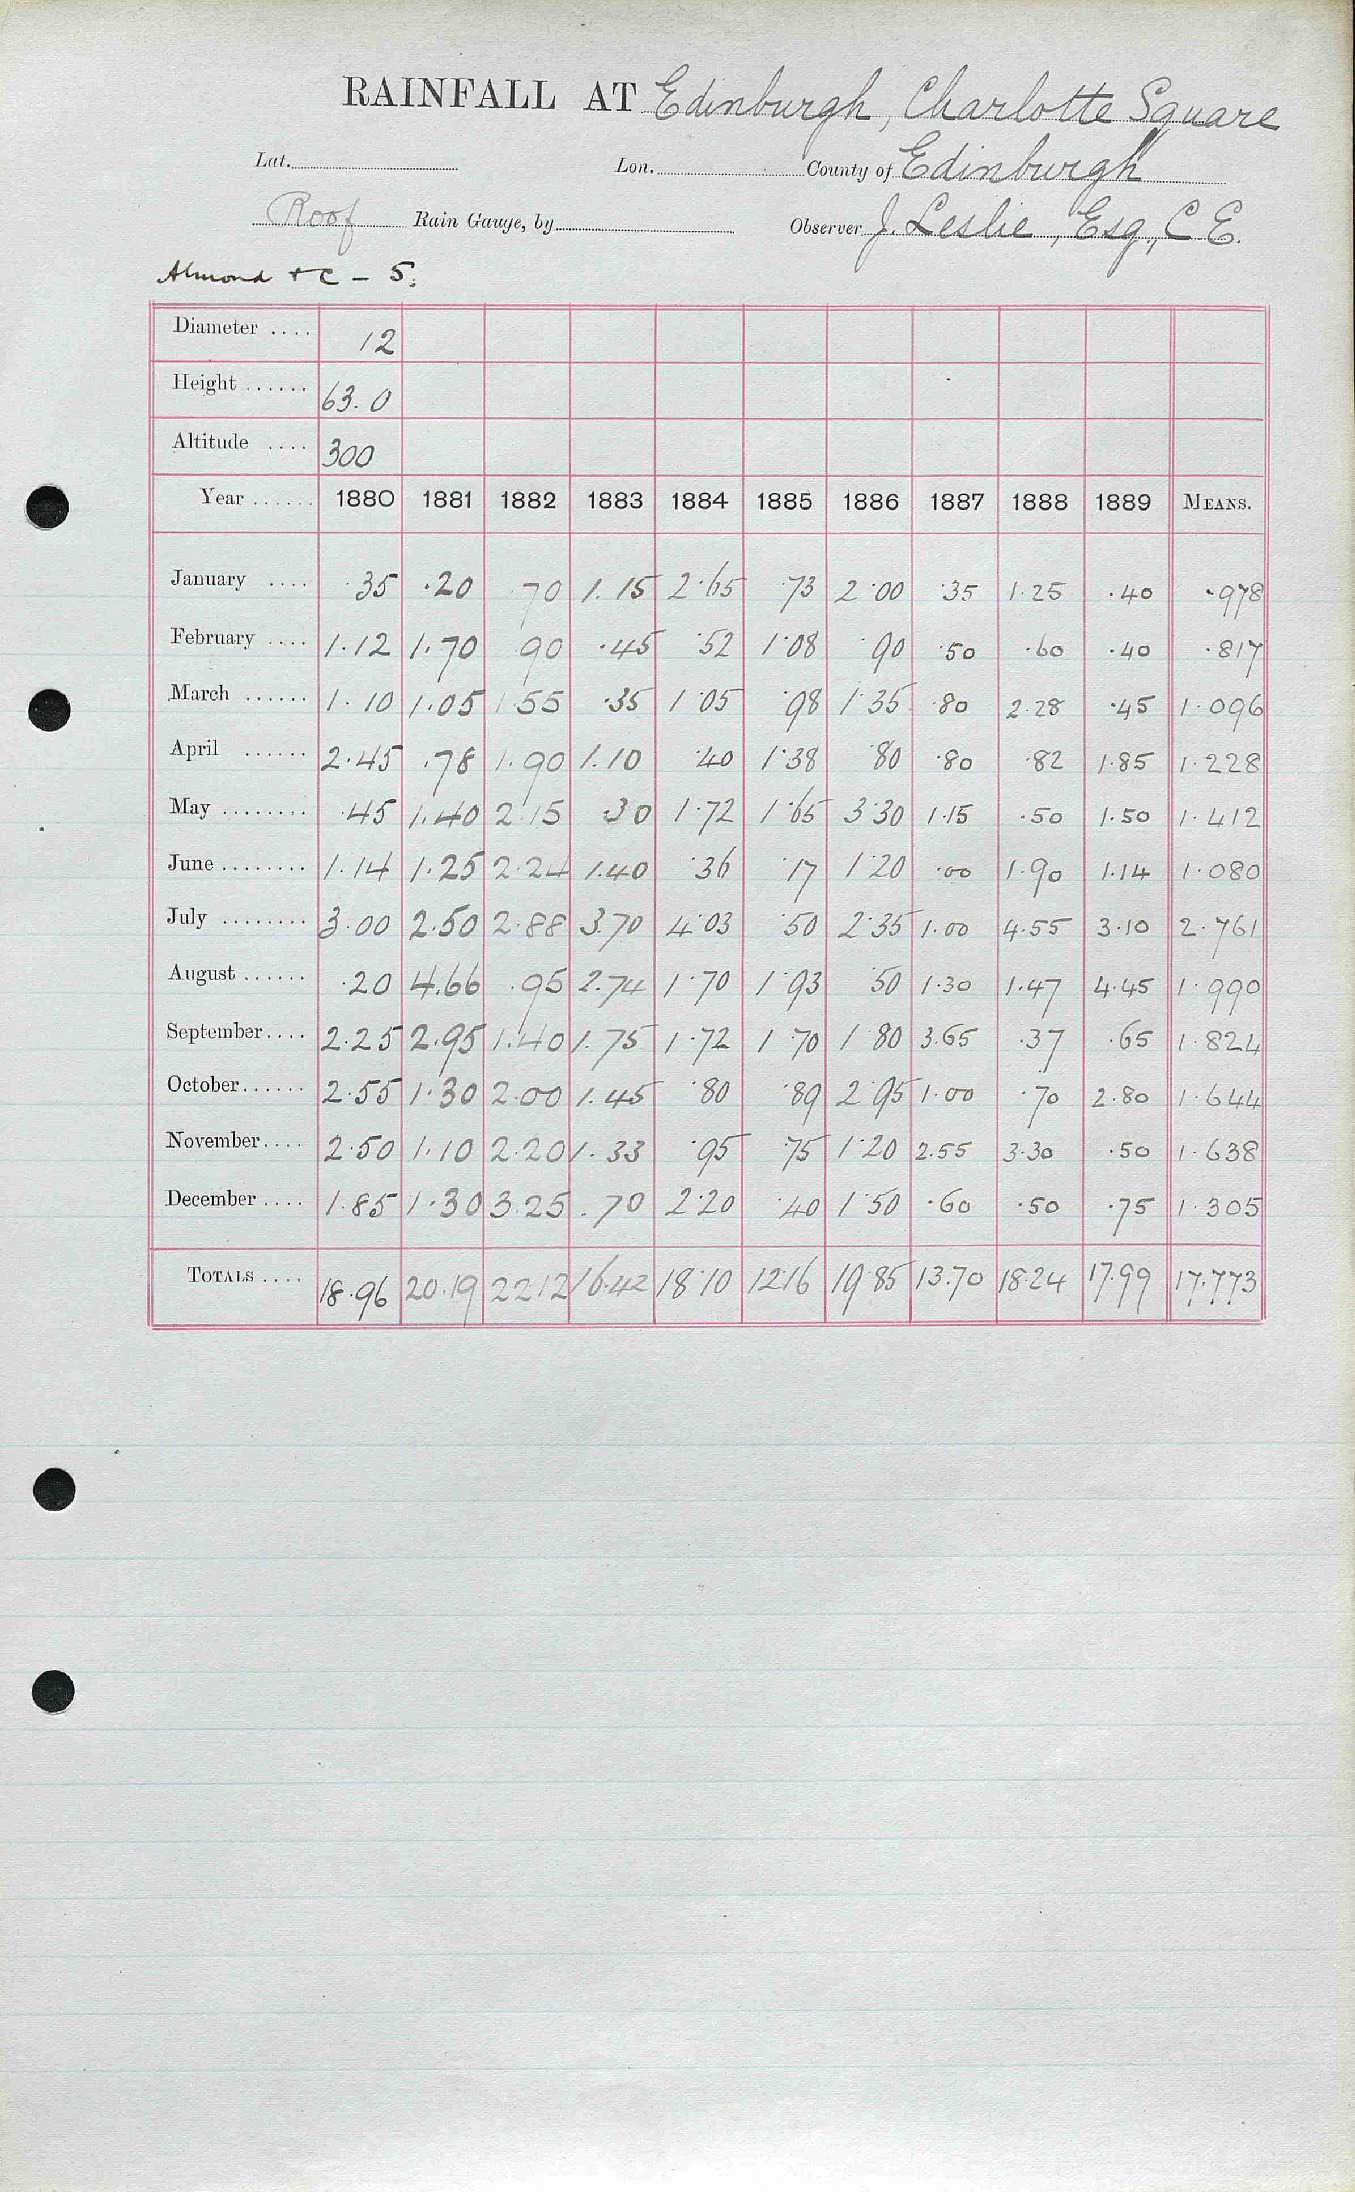 RAINFALL AT Edinburgh, Charlotte Square
Lat. Lon. County of Edinburgh
Roof Rain Gauge, by Observer J. Leslie, Esq., C E.
Almond & C - 5.
Diameter .... 12
Height ...... 63.0
Altitude .... 300
Year ...... 1880 1881 1882 1883 1884 1885 1886 1887 1888 1889 MEANS.
January .... .35 .20 .70 1.15 2.65 .73 2.00 .35 1.25 .40 .978
February .... 1.12 1.70 .90 .45 .52 1.08 .90 .50 .60 .40 .817
March ...... 1.10 1.05 1.55 .35 1.05 .98 1.35 .80 2.28 .45 1.096
April ...... 2.45 .78 1.90 1.10 .40 1.38 .80 .80 .82 1.85 1.228
May ........ .45 1.40 2.15 .30 1.72 1.65 3.30 1.15 .50 1.50 1.412
June ........ 1.14 1.25 2.24 1.40 .36 .17 1.20 .00 1.90 1.14 1.080
July ........ 3.00 2.50 2.88 3.70 4.03 .50 2.35 1.00 4.55 3.10 2.761
August ...... .20 4.66 .95 2.74 1.70 1.93 .50 1.30 1.47 4.45 1.990
September .... 2.25 2.95 1.40 1.75 1.72 1.70 1.80 3.65 .37 .65 1.824
October ...... 2.55 1.30 2.00 1.45 .80 .89 2.95 1.00 .70 2.80 1.644
November .... 2.50 1.10 2.20 1.33 .95 .75 1.20 2.55 3.30 .50 1.638
December .... 1.85 1.30 3.25 .70 2.20 .40 1.50 .60 .50 .75 1.305
TOTALS .... 18.96 20.19 22.12 16.42 18.10 12.16 19.85 13.70 18.24 17.99 17.773